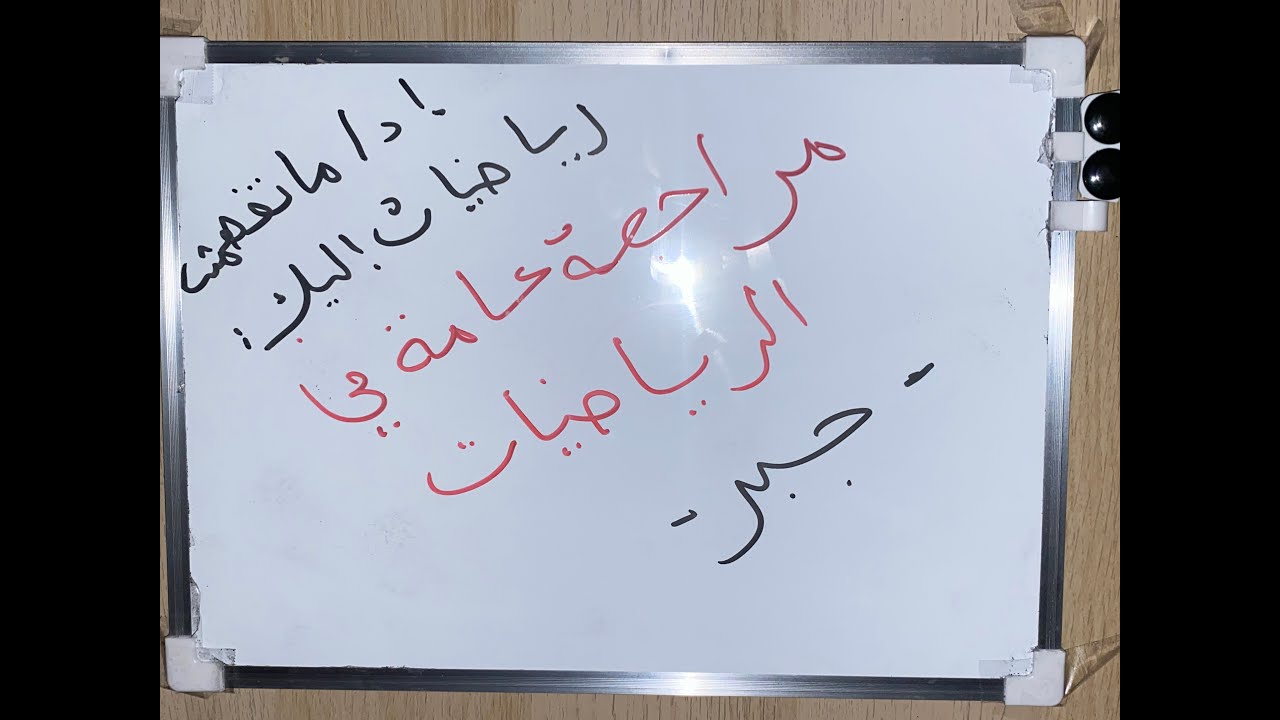 إذا ماتفهمت
رياضيات إليك:
مراجعة عامة في
الرياضيات
- جبر -